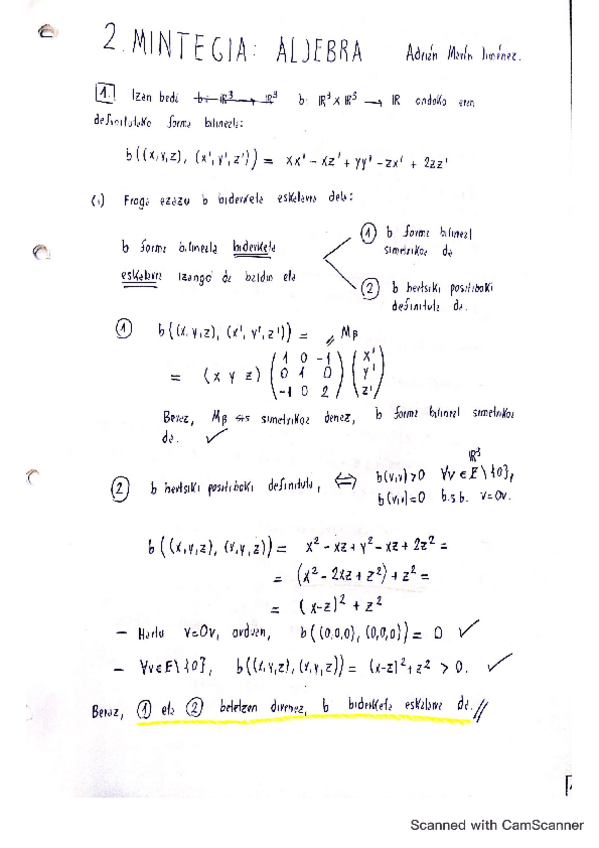 2. MINTEGIA: ALJEBRA Adrián Marín Jiménez.
1. Izan bedi b: ℝ³ → ℝ³ b: ℝ³ × ℝ³ → ℝ ondoko eran
definitutako forma bilineala:
b((x,y,z), (x',y',z')) = xx' - xz' + yy' - zx' + 2zz'
(i) Froga ezazu b biderketa eskalarra dela:
b forma bilineala biderketa
eskalarra izango da baldin eta
① b forma bilineal
simetrikoa da
② b hertsiki positiboki
definitua da.
① b((x,y,z), (x',y',z')) = Mβ
= (x y z) (1 0 -1) (x')
(0 1 0) (y')
(-1 0 2) (z')
Beraz, Mβ simetrikoa denez, b forma bilineal simetrikoa
da. ✓
② b hertsiki positiboki definitua, ⇔ b(v,v)>0 ∀v∈E\{0}, ℝ³
b(v,v)=0 b.s.b. v=0v.
b((x,y,z), (x,y,z)) = x² - xz + y² - xz + 2z² =
= (x² - 2xz + z²) + z² =
= (x-z)² + z²
- Hartu v=0v, orduan, b((0,0,0), (0,0,0)) = 0 ✓
- ∀v∈E\{0}, b((x,y,z),(x,y,z)) = (x-z)² + z² > 0. ✓
Beraz, ① eta ② betetzen direnez, b biderketa eskalarra da.//
Scanned with CamScanner